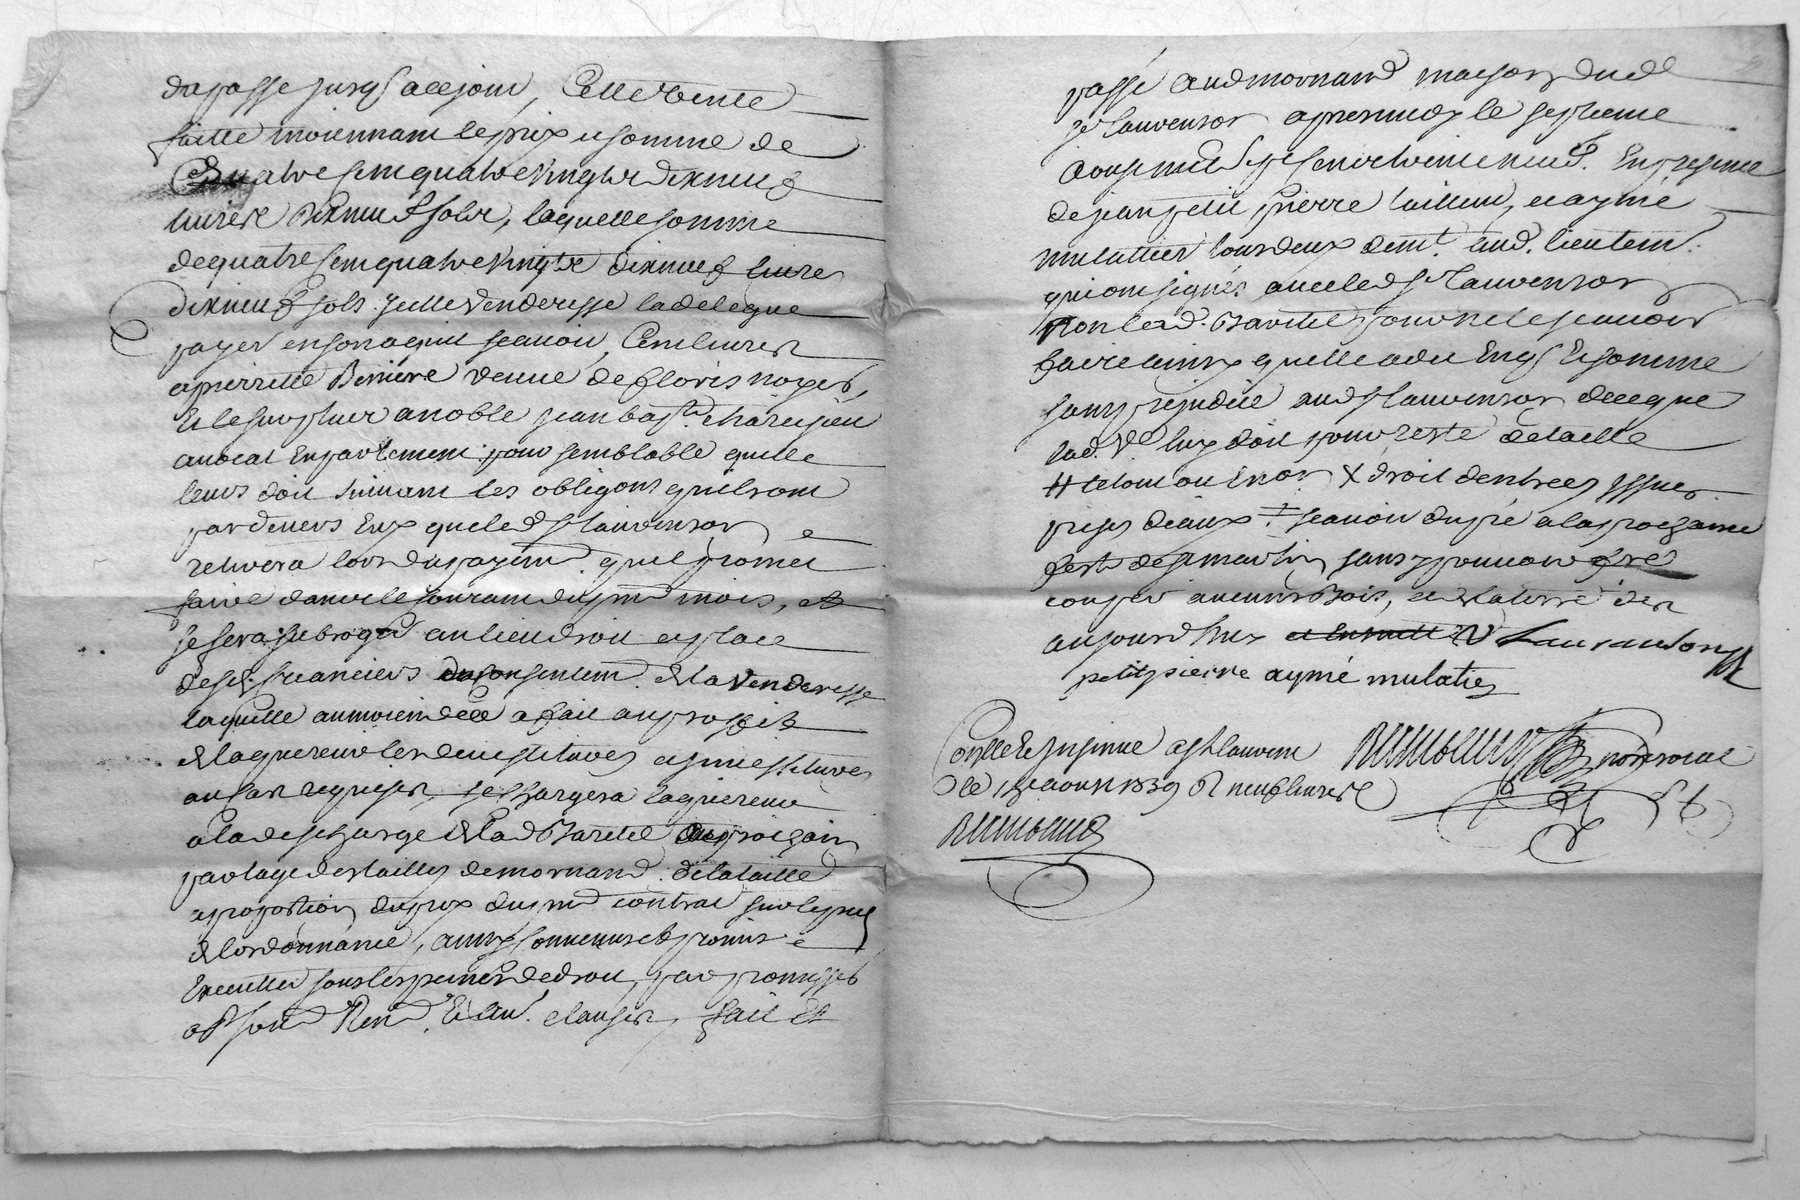 du passe jusq's a ce jour, Cette vente
faitte moiennant le prix et somme de
quatre cent quatre vingts dix neuf
livres dix neuf sols, laquelle somme
de quatre cent quatre vingts dix neuf livres
dix neuf sols icelle venderesse la delegue
payer en son aquit scavoir, Cent livres
a pierrette Berriere veuve de floris noyer,
Et le surplus a noble jean bapt.
avocat En parlement pour semblable quelle
leurs doit suivant les obligons quils ont
par devers Eux que led Sr lauvenson
retirera lors du payem. quil promet
faire dans le courant du pnt mois, et
se sera subrogé au lieu droit et place
desd. creanciers du consentem. de la venderesse
laquelle au moien de ce a fait au proffit
de laquereur les devestitures et investitures
au cas requises, se chargera laquereur
a la descharge de lad Baritel au prochain
partage des tailles de mornand de la taille
a proportion du prix du pnt contrat suivant
de lordonnance, ainsy convenu et promis
Executter sous les peines de droit, par promesses
obl soum Ren. Et au. clauses, fait et
passé aud mornand maison dud
sr lauvenson apres midy le septieme
aoust mil sept cent trente neuf. En presence
de jean petit pierre tailleur, et aymé
mulattier tous deux demt. aud. lieu tem.
qui ont signés avec led Sr lauvenson
non lad. Baritel pour ne le scavoir
faire ainsy quelle a dit Enq. Et somme
sans prejudice aud Sr lauvenson de ce que
lad. Ve luy doit pour reste de taille
# le tout ou Environ X droit dentrees Issues
prises deaux ‡ scavoir du pré a la prochaine
feste de st martin sans y pouvoir
couper aucuns bois, et de la terre des
aujourdhuy Lauvanson
petitpierre aymé mulatier
Conllé Et Insinué a St lauvent
le aoust 1739 R neuf livres